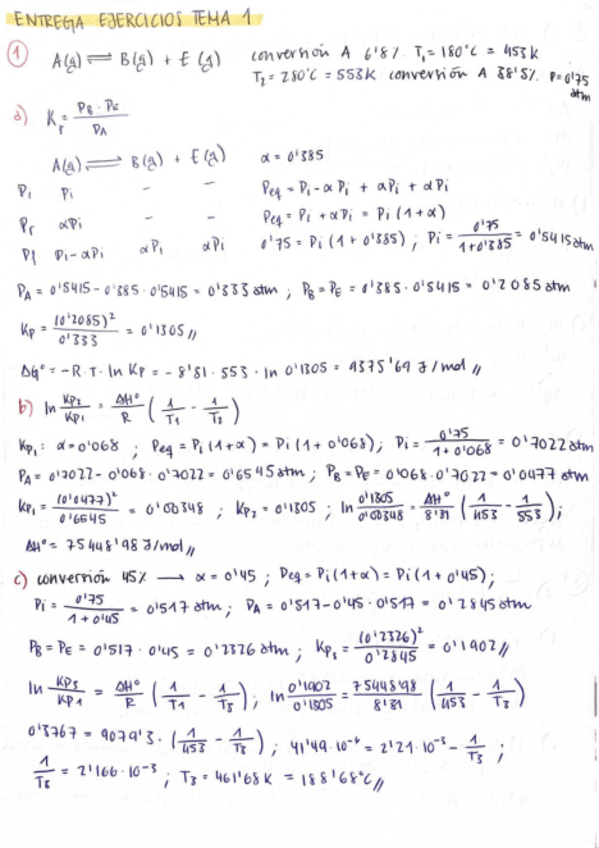 ENTREGA EJERCICIOS TEMA 1
① A(g) ⇌ B(g) + E(g) conversión A 6'8%. T₁ = 180°C = 453K
T₂ = 280°C = 553K conversión A 38'5%. P=0'75 atm
a) Kp = PB · PE / PA
A(g) ⇌ B(g) + E(g) α = 0'385
Pi Pi - - Peq = Pi - αPi + αPi + αPi
Pr αPi - - Peq = Pi + αPi = Pi (1+α)
Pf Pi - αPi αPi αPi 0'75 = Pi (1 + 0'385) ; Pi = 0'75 / 1+0'385 = 0'5415 atm
PA = 0'5415 - 0'385 · 0'5415 = 0'333 atm ; PB = PE = 0'385 · 0'5415 = 0'2085 atm
Kp = (0'2085)² / 0'333 = 0'1305 //
ΔG° = -R · T · ln Kp = - 8'31 · 553 · ln 0'1305 = 9375'69 J/mol //
b) ln Kp₂/Kp₁ = ΔH°/R (1/T₁ - 1/T₂)
Kp₁ : α = 0'068 ; Peq = Pi (1+α) = Pi (1 + 0'068) ; Pi = 0'75 / 1+0'068 = 0'7022 atm
PA = 0'7022 - 0'068 · 0'7022 = 0'6545 atm ; PB = PE = 0'068 · 0'7022 = 0'0477 atm
Kp₁ = (0'0477)² / 0'6545 = 0'00348 ; Kp₂ = 0'1305 ; ln 0'1305/0'00348 = ΔH°/8'31 (1/453 - 1/553) ;
ΔH° = 75448'98 J/mol //
c) conversión 45% → α = 0'45 ; Peq = Pi (1+α) = Pi (1 + 0'45) ;
Pi = 0'75 / 1+0'45 = 0'517 atm ; PA = 0'517 - 0'45 · 0'517 = 0'2845 atm
PB = PE = 0'517 · 0'45 = 0'2326 atm ; Kp₃ = (0'2326)² / 0'2845 = 0'1902 //
ln Kp₃/Kp₁ = ΔH°/R (1/T₁ - 1/T₃) ; ln 0'1902/0'1305 = 75448'98/8'31 (1/453 - 1/T₃)
0'3767 = 9079'3 · (1/453 - 1/T₃) ; 41'49·10⁻⁶ = 2'21·10⁻³ - 1/T₃ ;
1/T₃ = 2'166·10⁻³ ; T₃ = 461'68K = 188'68°C //